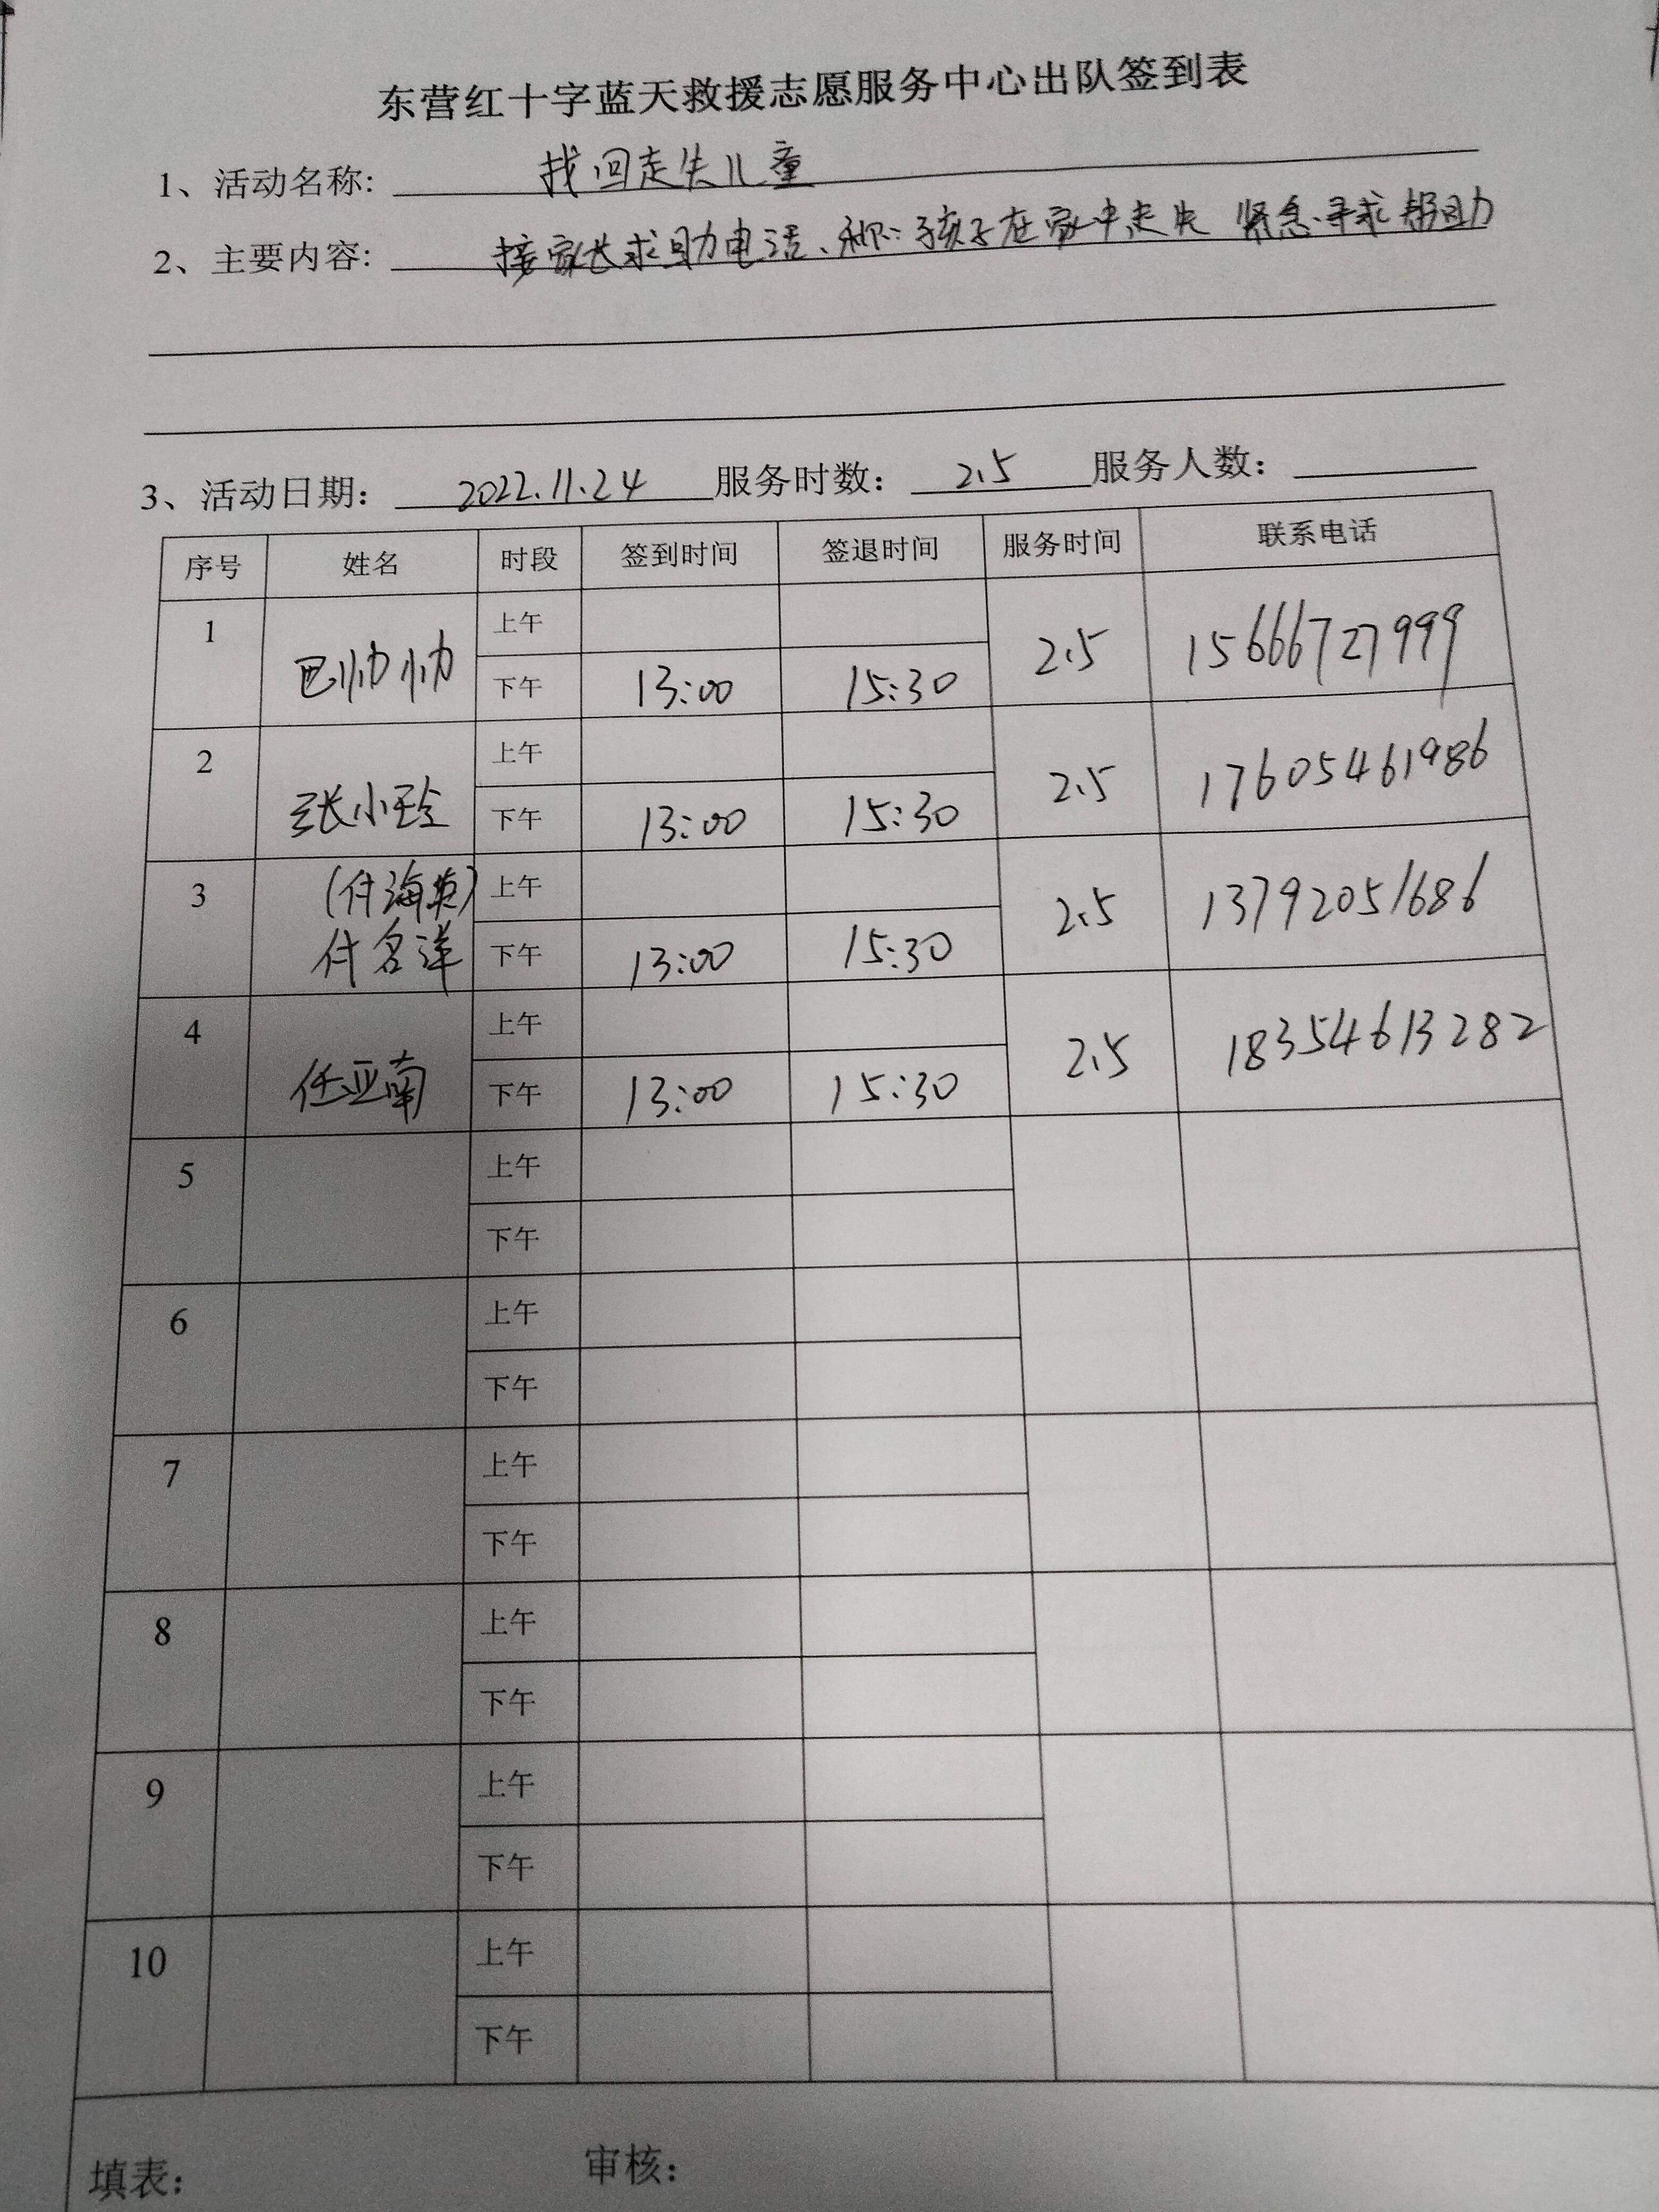 东营红十字蓝天救援志愿服务中心出队签到表
1、活动名称: 找回走失儿童
2、主要内容: 接家长求助电话、称:孩子在家中走失 紧急寻求帮助
3、活动日期: 2022.11.24 服务时数: 2.5 服务人数:
序号 姓名 时段 签到时间 签退时间 服务时间 联系电话
1 巴帅帅 上午 2.5 15666727999
下午 13:00 15:30
2 张小玲 上午 2.5 17605461986
下午 13:00 15:30
3 (付海英) 上午 2.5 13792051686
付名洋 下午 13:00 15:30
4 任亚南 上午 2.5 18354613282
下午 13:00 15:30
5 上午
下午
6 上午
下午
7 上午
下午
8 上午
下午
9 上午
下午
10 上午
下午
填表: 审核: